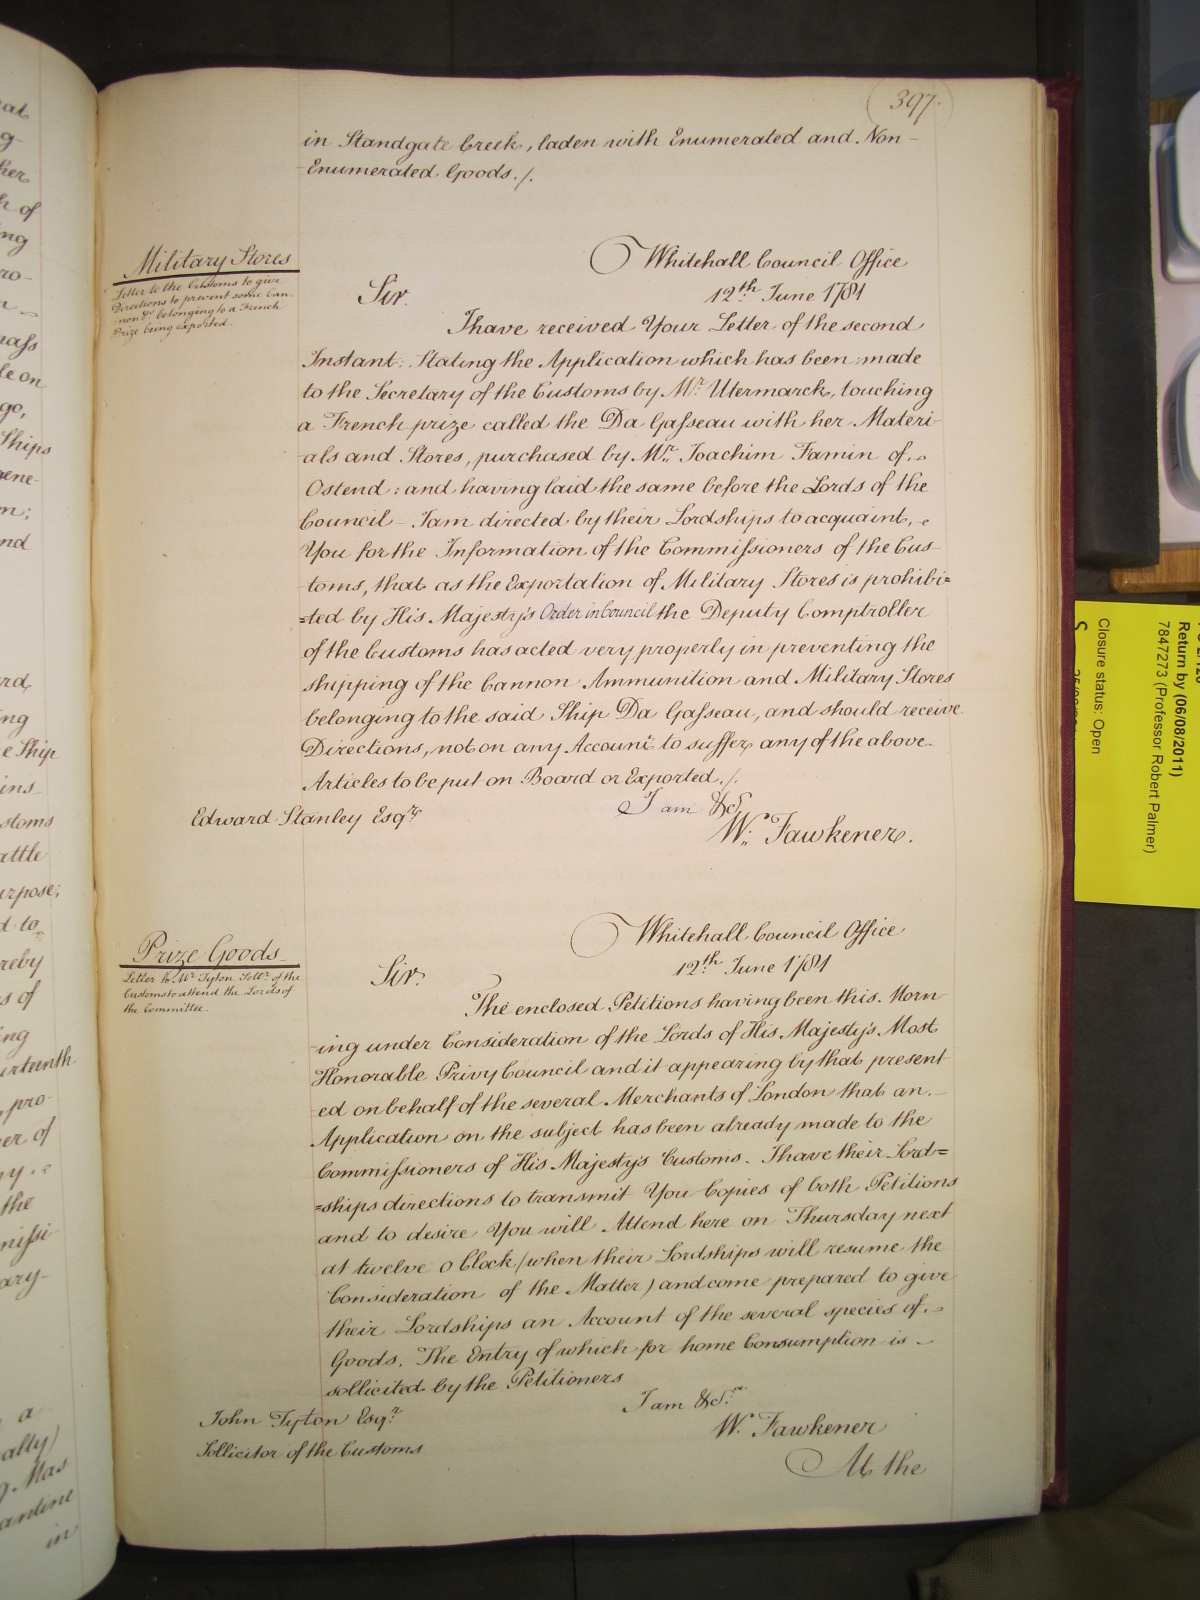 397.
in Standgate Creek, laden with Enumerated and Non-
-Enumerated Goods./.
Military Stores
Letter to the Customs to give
Directions to prevent some Can-
-non &c. belonging to a French
Prize being exported.
Whitehall Council Office
12th June 1781
Sir.
I have received Your Letter of the second
Instant: Stating the Application which has been made
to the Secretary of the Customs by Mr. Utermarck, touching
a French prize called the Da Gasseau with her Materi-
als and Stores, purchased by Mr. Joachim Famin of
Ostend; and having laid the same before the Lords of the
Council - I am directed by their Lordships to acquaint,
You for the Information of the Commissioners of the Cus-
-toms, that as the Exportation of Military Stores is prohibi=
=ted by His Majesty's Order in Council the Deputy Comptroller
of the Customs has acted very properly in preventing the
shipping of the Cannon Ammunition and Military Stores
belonging to the said Ship Da Gasseau, and should receive
Directions, not on any Account to suffer any of the above
Articles to be put on Board or Exported./.
I am &c.
Edward Stanley Esqre
W: Fawkener.
Prize Goods
Letter to Mr Tyton Sollr. of the
Customs to attend the Lords of
the Committee.
Whitehall Council Office
12th June 1781
Sir.
The enclosed Petitions having been this Morn
-ing under Consideration of the Lords of His Majesty's Most
Honorable Privy Council and it appearing by that present
-ed on behalf of the several Merchants of London that an
Application on the subject has been already made to the
Commissioners of His Majesty's Customs. I have their Lord=
=ships directions to transmit You Copies of both Petitions
and to desire You will Attend here on Thursday next
at twelve o Clock (when their Lordships will resume the
Consideration of the Matter) and come prepared to give
their Lordships an Account of the several species of
Goods. The Entry of which for home Consumption is
sollicited by the Petitioners
I am &c.
John Tyton Esqr.
W. Fawkener
Sollicitor of the Customs
At the
Return by (06/08/2011)
7847273 (Professor Robert Palmer)
Closure status: Open